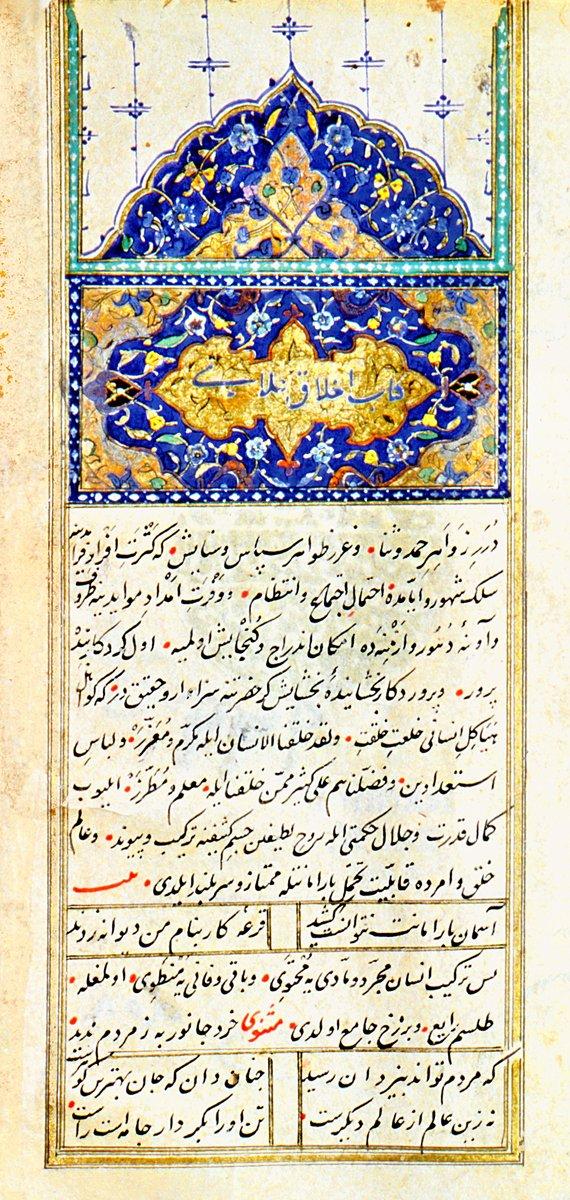 کتاب اخلاق علایی
درر زواهر حمد وثنا وغرر ظواهر سپاس وستایش که کثرت افراد فرایدینه
سلک شهور وایامده احتمال اجتماع وانتظام ووفرت امداد موایدینه ظروف
وآونهٔ دهور وازمنه‌ده امکان اندراج وکنجایش اولمیه اول کردکار بنده
پرور وپروردکار بخشایندهٔ بخشایشکر حضرتنه سزاوار وحقیق در که
هیاکل انسانی خلعت خلقت ولقد خلقنا الانسان ایله مکرم ومعزز ولباس
استعدادین وفضلناهم علی کثیر ممن خلقنا ایله معلم ومطرز ایلیوب
کمال قدرت وجلال حکمتی ایله روح لطیفلن جسم کثیفنه ترکیب وپیوند وعالم
خلق وامرده قابلیت تحمل بار امانتله ممتاز وسربلند ایلدی بیت
آسمان بار امانت نتوانست کشید قرعه کار بنام من دیوانه زدند
پس ترکیب انسان مجرد ومادی یه محتوی وباقی وفانی یه منطوی اولمغله
طلسم رابع وبرزخ جامع اولدی مثنوی خرد جانور به ز مردم ندید
که مردم تواند بیزدان رسید چنان دان که جان بهترین کوهرست
نه زین عالم از عالم دیکرست تن او را بکردار جامه است راست